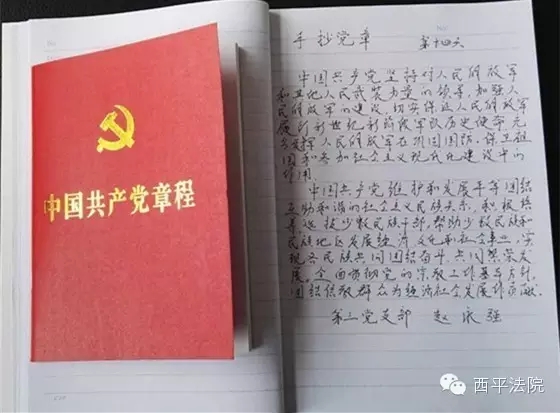 中国共产党章程
手抄党章 第十四天
中国共产党坚持对人民解放军
和其他人民武装力量的领导,加强人
民解放军的建设,切实保证人民解放军
履行新世纪新阶段军队历史使命,充
分发挥人民解放军在巩固国防、保卫祖
国和参加社会主义现代化建设中的
作用
中国共产党维护和发展平等团结
互助和谐的社会主义民族关系,积极培
养选拔少数民族干部,帮助少数民族和
民族地区发展经济、文化和社会事业,实
现各民族共同团结奋斗、共同繁荣发
展。全面贯彻党的宗教工作基本方针,
团结信教群众为经济社会发展作贡献.
第三党支部 赵
西平法院